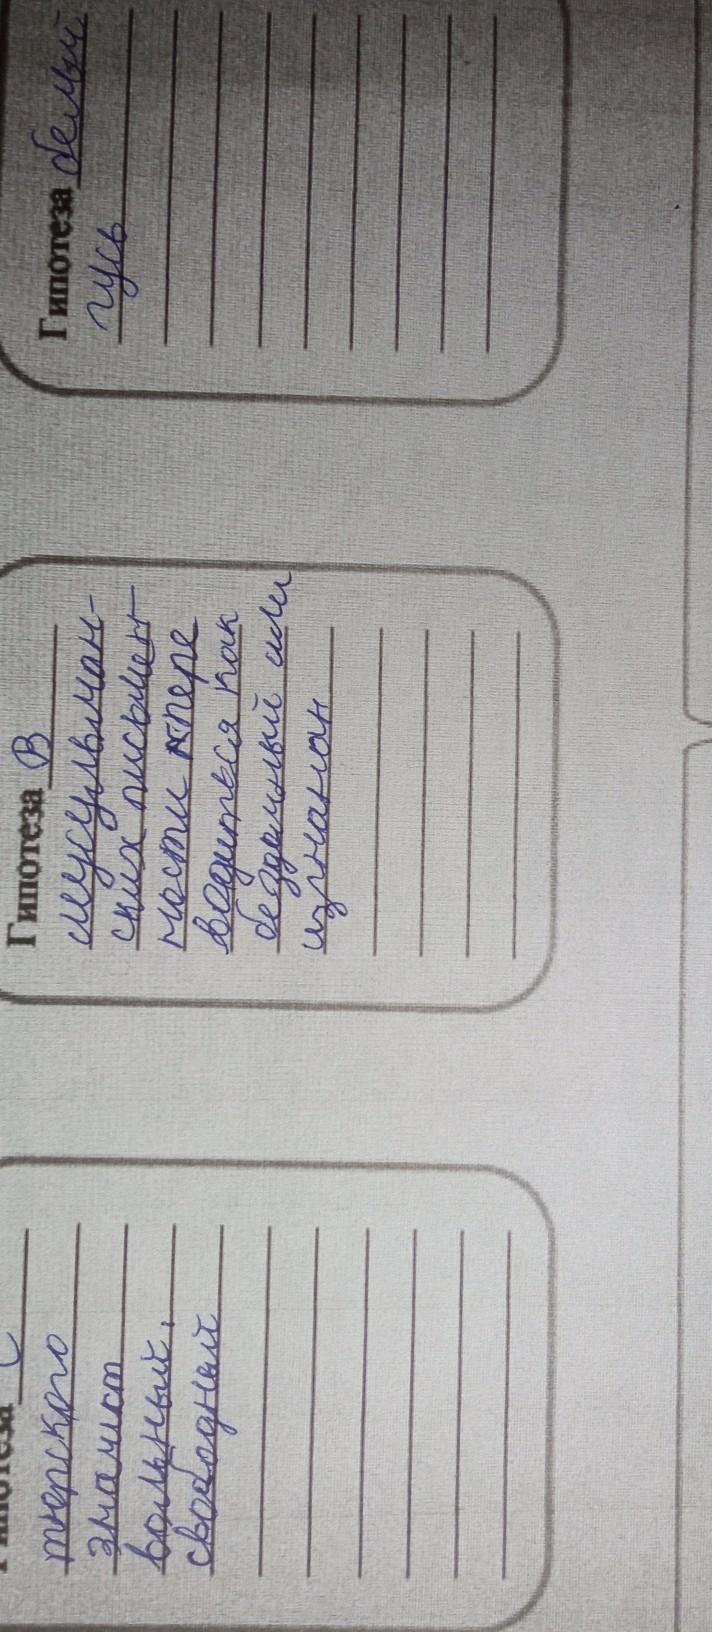 Гипотеза С
тюрского
значит
вольный,
свободный
Гипотеза В
мусульман-
ских письмен
ности пере
водиться как
бездомный или
изгнанан
Гипотеза белый
гусь